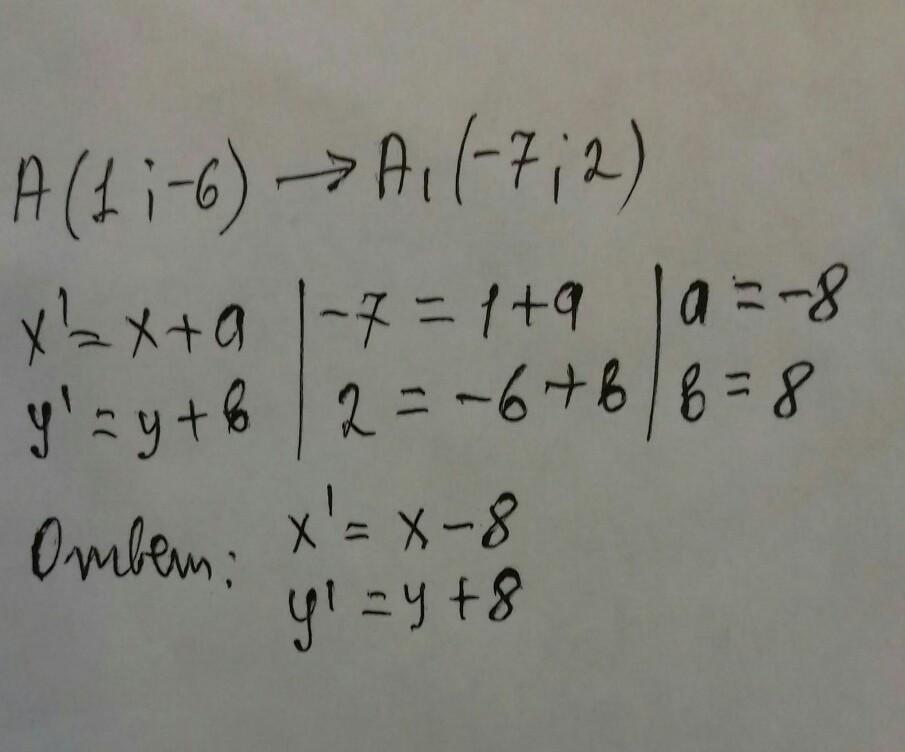 A(1;-6) → A₁(-7;2)
x' = x + a | -7 = 1 + a | a = -8
y' = y + в | 2 = -6 + в | в = 8
Ответ: x' = x - 8
y' = y + 8